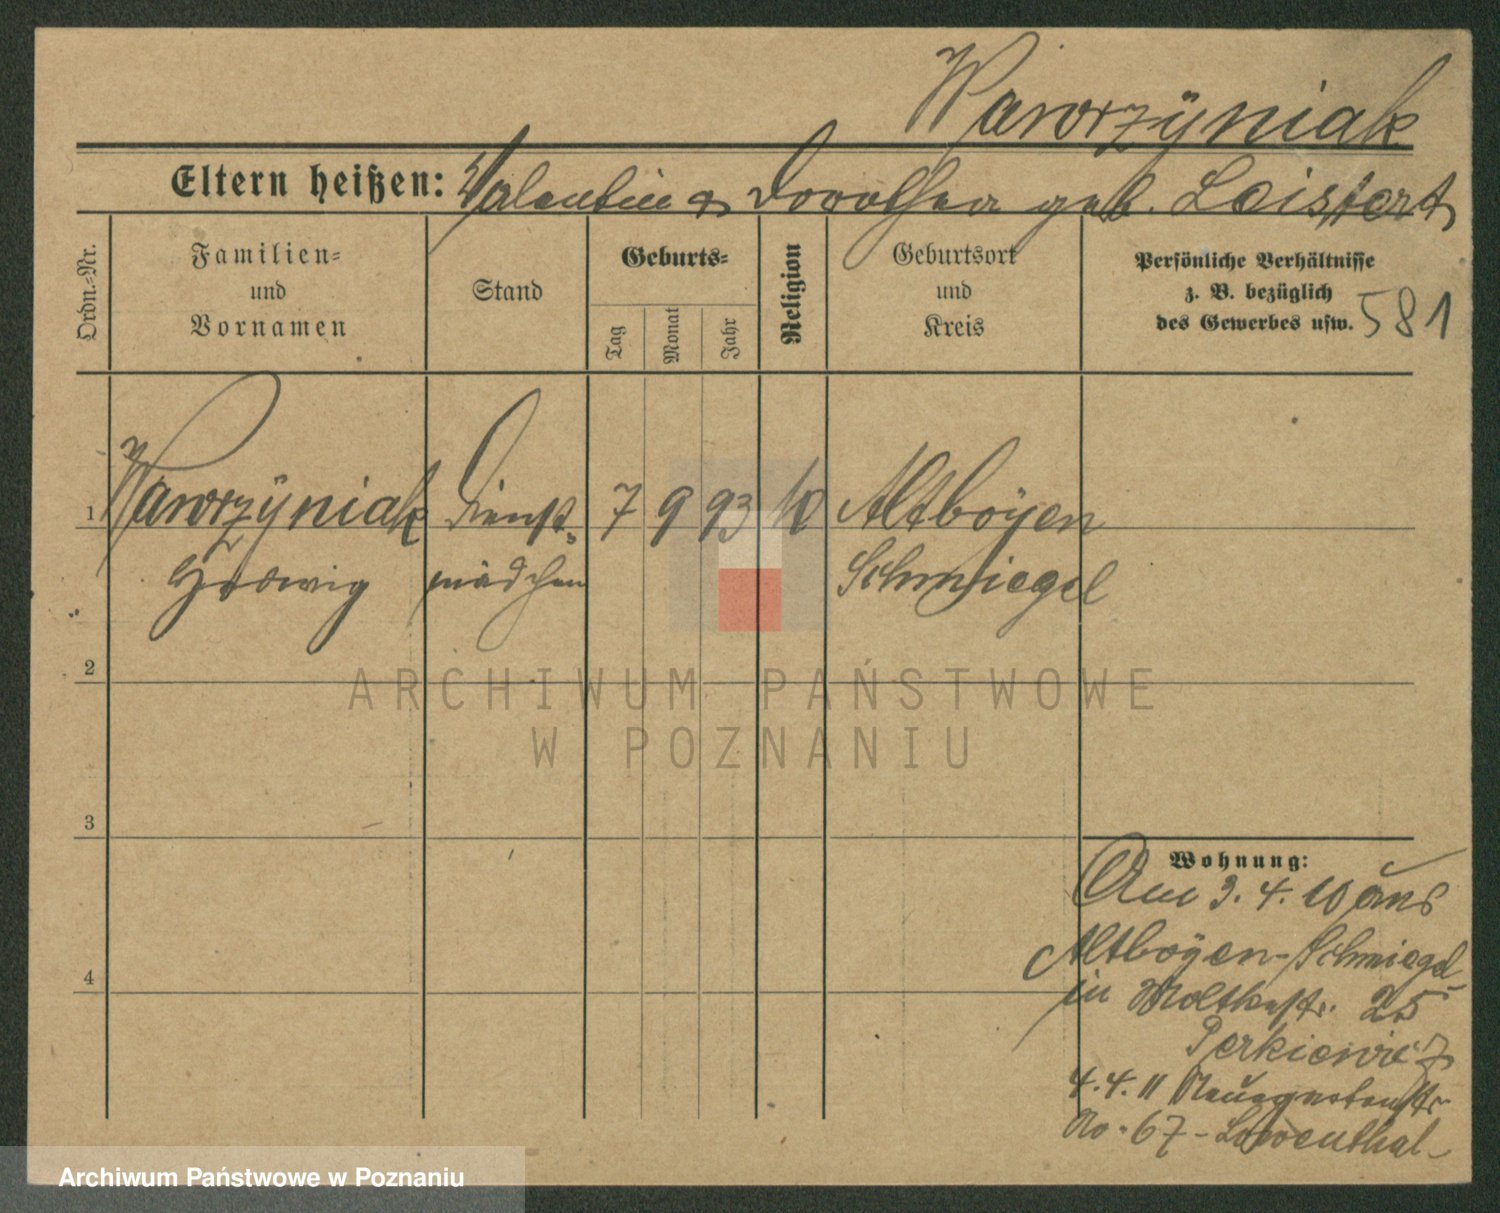 Wawrzÿniak
Eltern heißen: Valentin & Dorothea geb. Leistert
Ordn.-Nr.
Familien-
und
Vornamen
Stand
Geburts-
Tag
Monat
Jahr
Religion
Geburtsort
und
Kreis
Persönliche Verhältnisse
z. B. bezüglich
des Gewerbes usw. 581
1 Wawrzÿniak Dienst- 7 9 93 k Altboÿen
Hedwig mädchen Schmiegel
2
ARCHIWUM PAŃSTWOWE
W POZNANIU
3
Wohnung:
Am 3. 4. 10 aus
Altboÿen-Schmiegel
4
in Moltkestr. 25
Perkiewicz
4. 4. 11
No. 67 - Loewenthal -
Archiwum Państwowe w Poznaniu